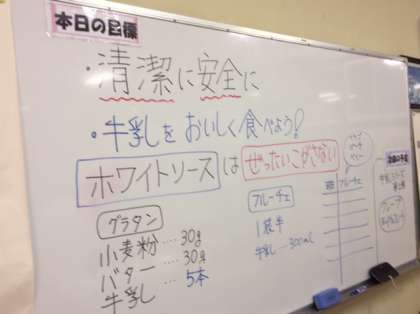 本日の目標
・清潔に安全に
・牛乳をおいしく食べよう!
ホワイトソースはぜったいこがさない
グラタン
小麦粉…30g
バター…30g
牛乳…5本
フルーチェ
1袋半
牛乳…300mL
フルーチェ